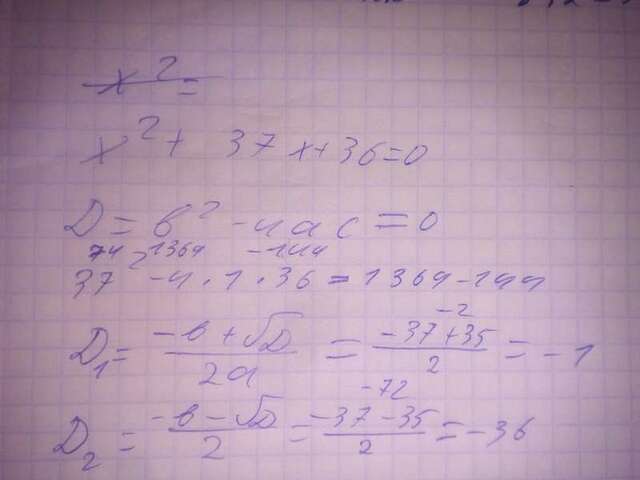 x² =
x² + 37x + 36 = 0
D = b² - 4ac = 0
1369 - 144
37² - 4 · 1 · 36 = 1369 - 144
-2
D₁ = -b + √D / 2a = -37 + 35 / 2 = -1
-72
D₂ = -b - √D / 2 = -37 - 35 / 2 = -36